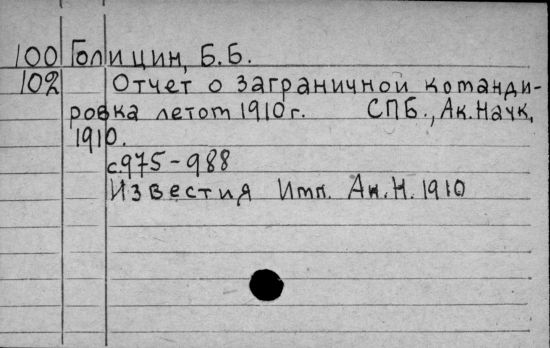 100 Голицин, Б.Б.
102 Отчет о заграничной команди-
ровка летом 1910 г. СПБ., Ак. Наук,
1910.
с.975-988
Известия Имп. Ак. Н. 1910